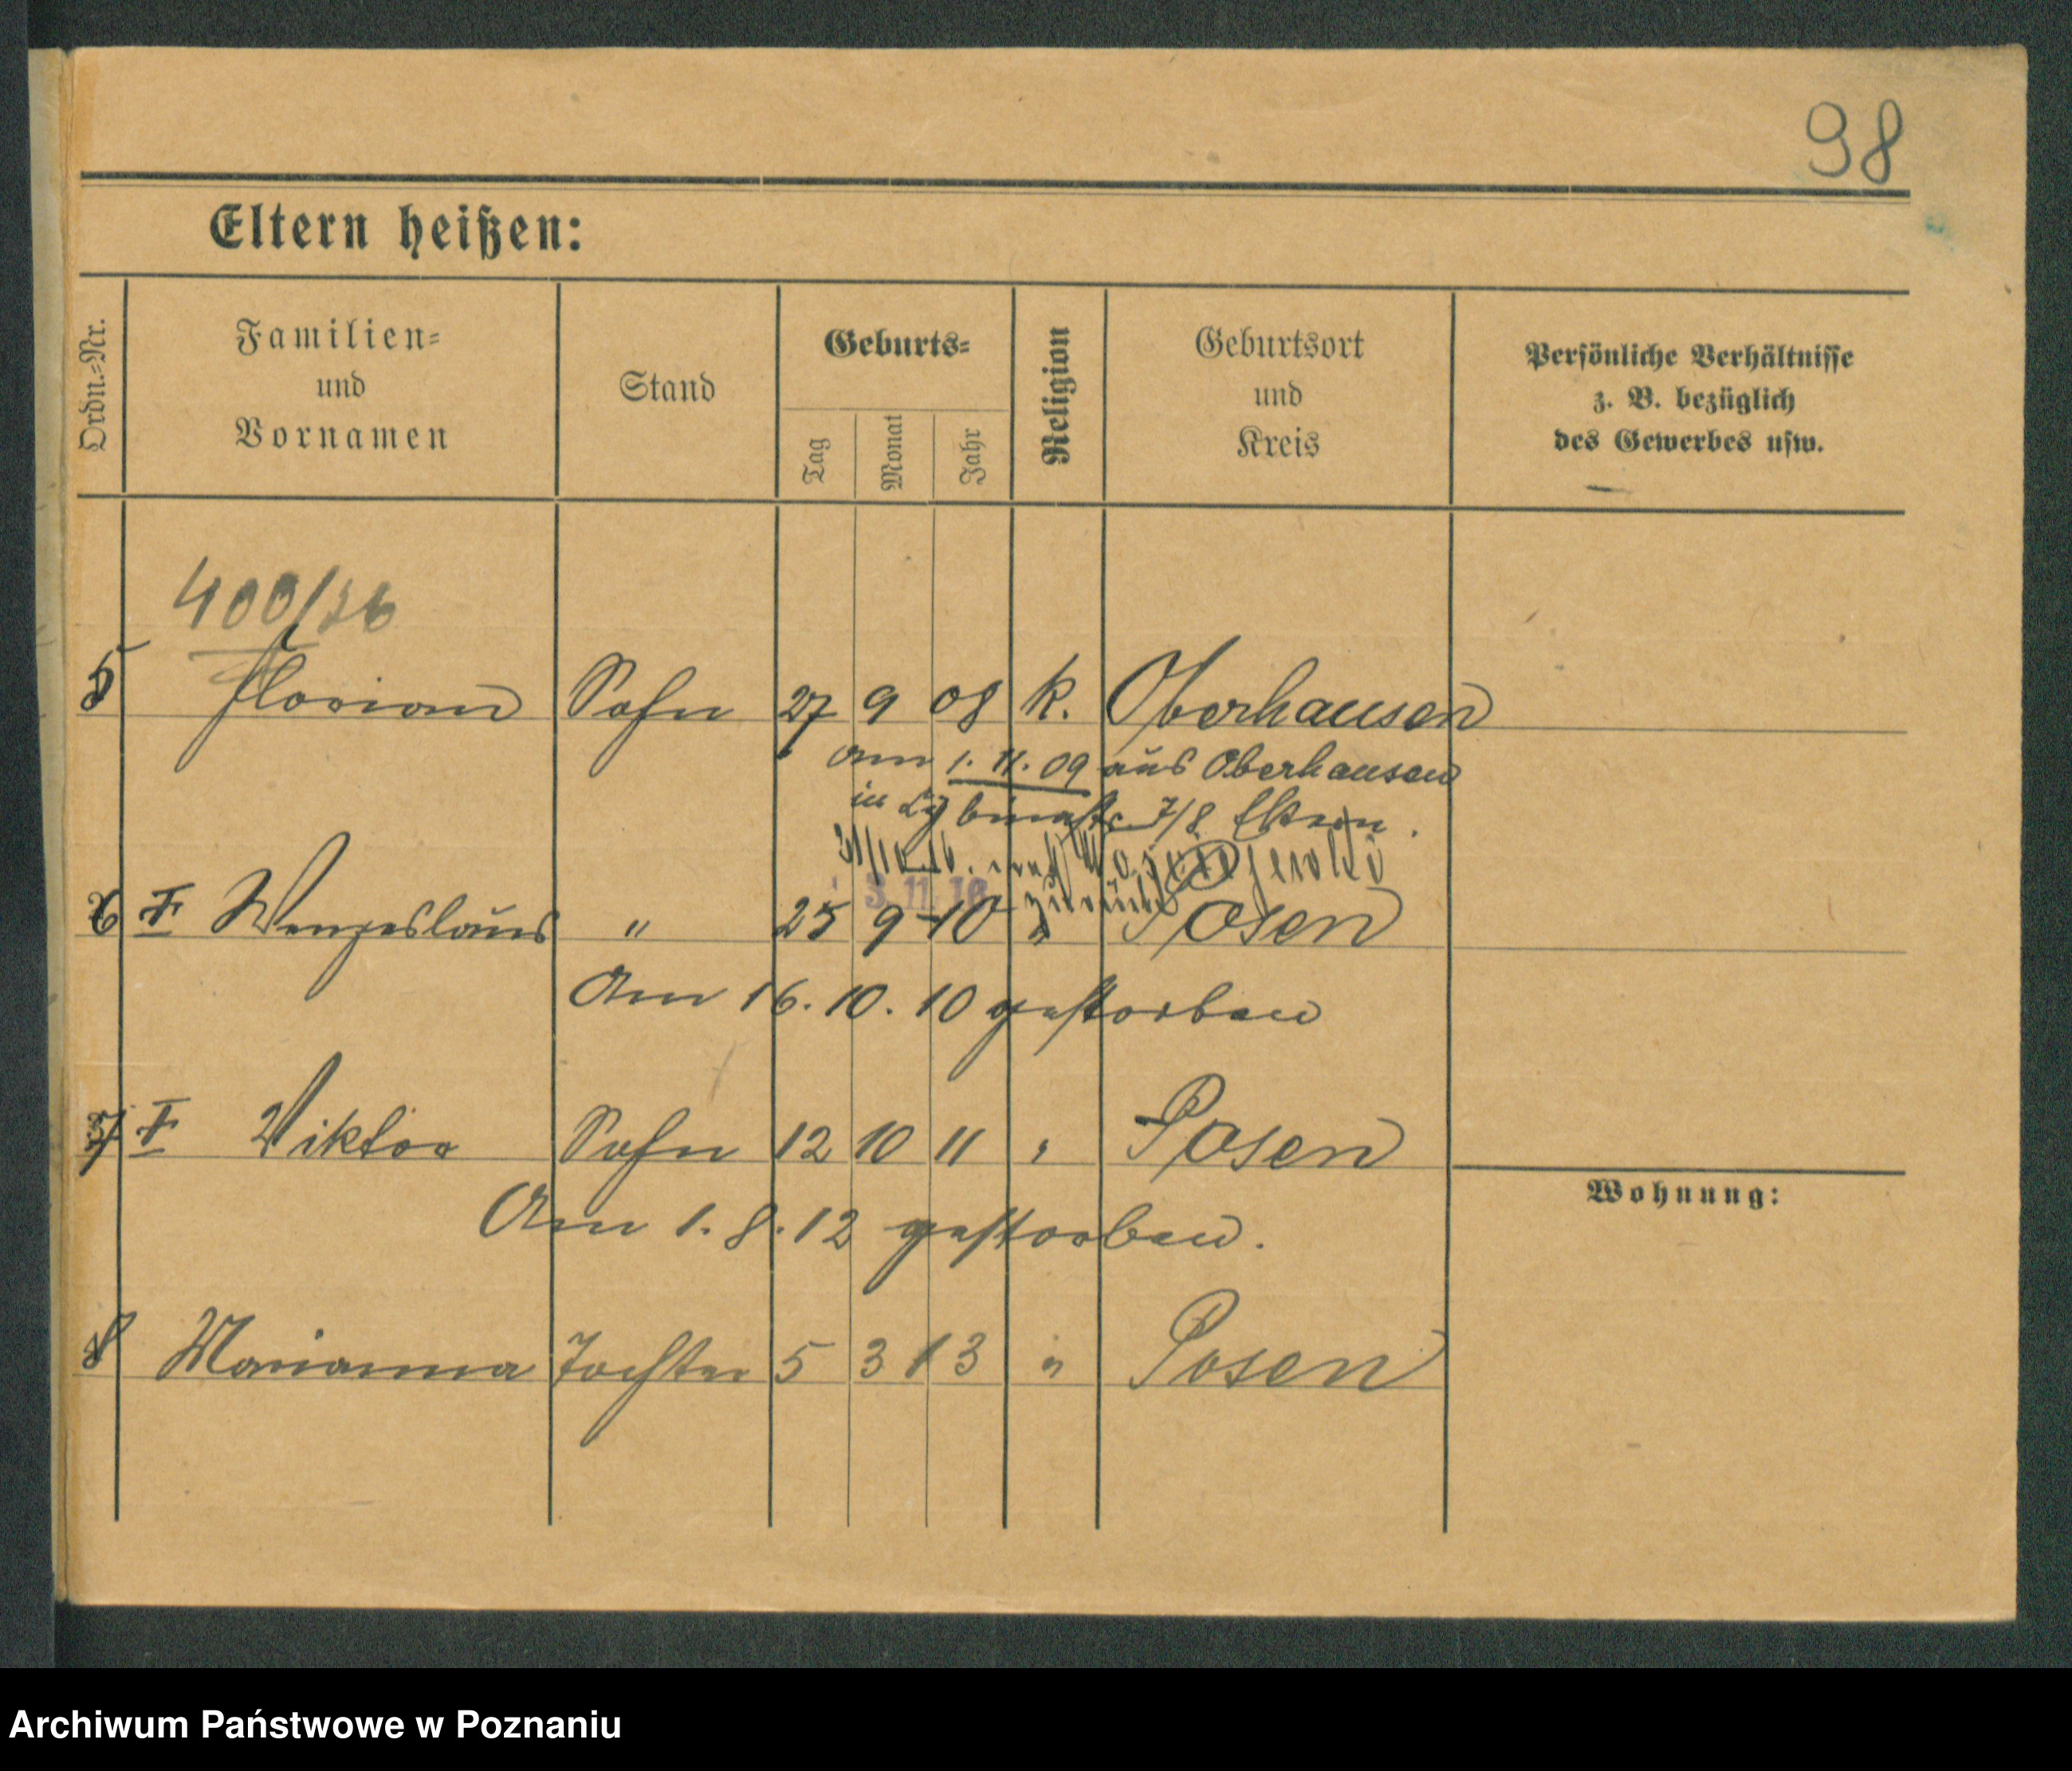 98
Eltern heißen:
Ordn.-Nr.
Familien-
und
Vornamen
Stand
Geburts-
Tag
Monat
Jahr
Religion
Geburtsort
und
Kreis
Persönliche Verhältnisse
z. B. bezüglich
des Gewerbes usw.
400/36
5 Florian Sohn 27 9 08 k. Oberhausen
am 1. 11. 09 aus Oberhausen
in 7/8 Eltern.
nach
3.11.16 zurück
6 Wenzeslaus " 25 9 10 " Posen
Am 16. 10. 10 gestorben
7 Viktor Sohn 12 10 11 " Posen
Am 1. 8. 12 gestorben.
Wohnung:
8 Marianna Tochter 5 3 13 " Posen
Archiwum Państwowe w Poznaniu